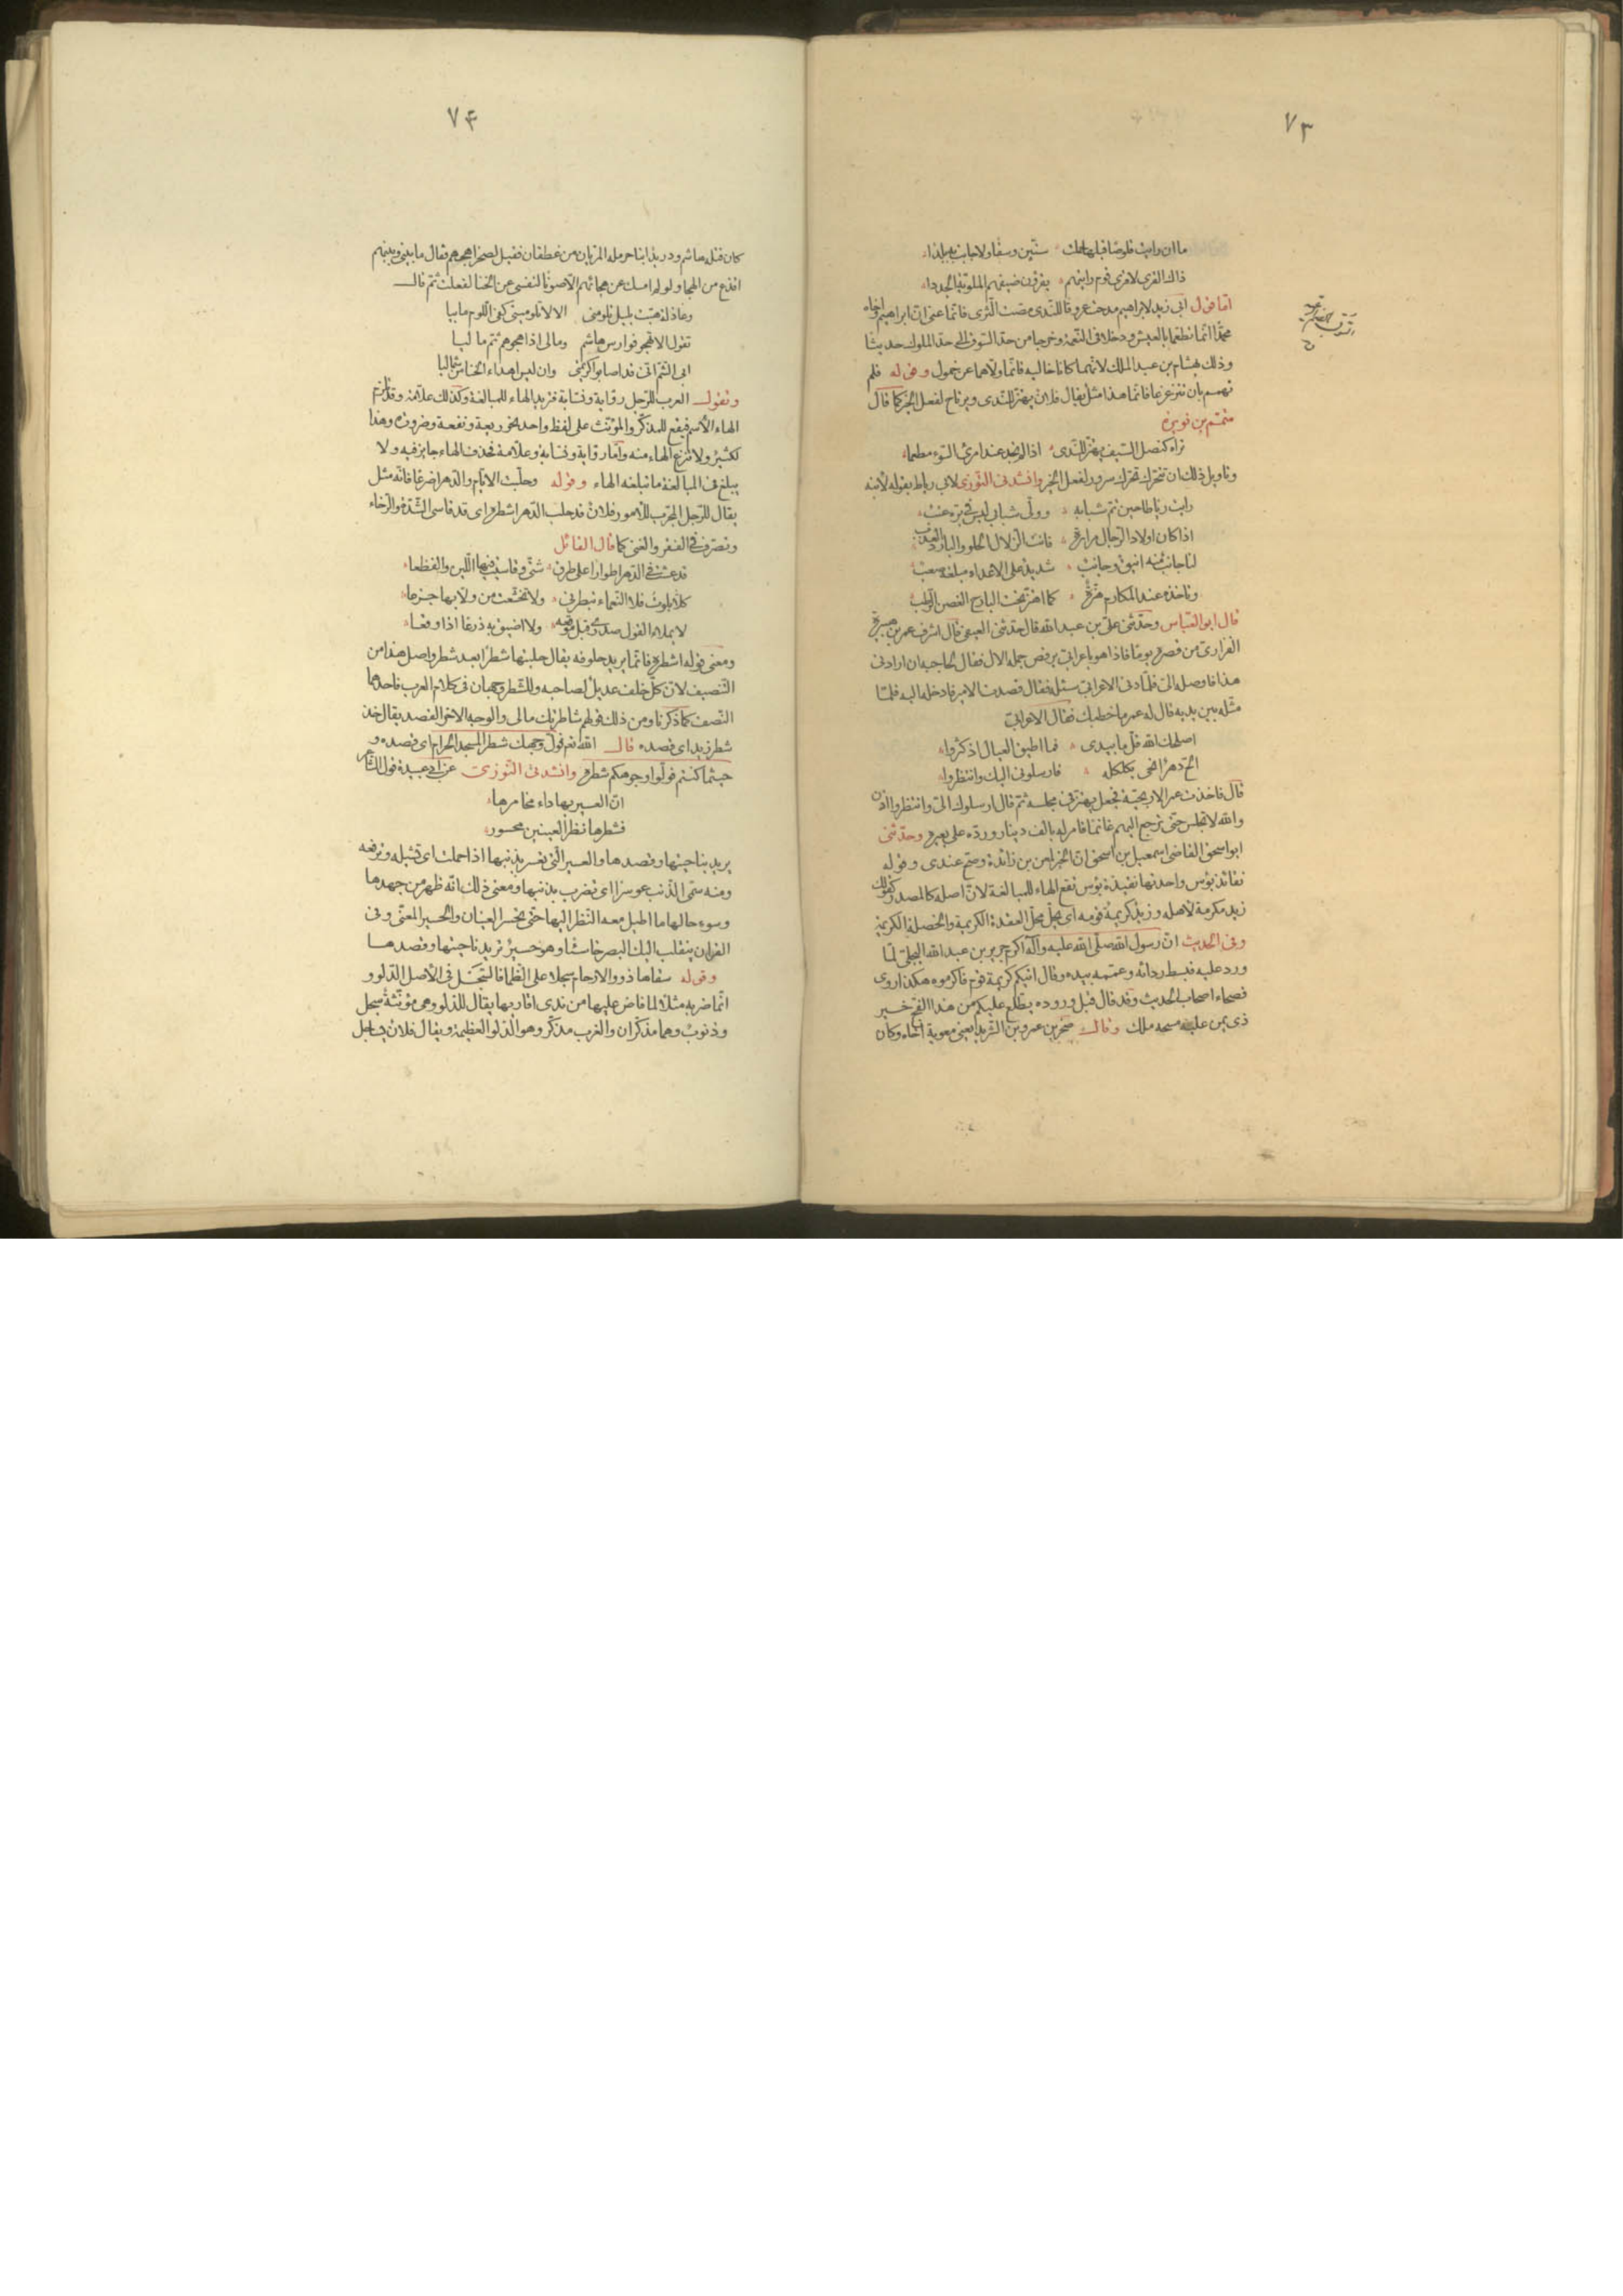 ٧٣
ما ان رايت قلوصا قبلها حملت ستّين وسقا ولا جابت به بلدا
ذاك القرى لا قرى قوم رايتهم يقرون ضيفهم الملويّة الجددا
امّا قول ابى زيد لابراهيم مدحت عروقا للنّدى مصّت الثّرى فانّما عنى انّ ابراهيم واخاه
محمّدا انّما نطعما بالعيش ودخلا فى النّعمة وخرجا من حدّ السّوق الى حدّ الملوك حديثا
وذلك بهشام بن عبد الملك لانّهما كانا خاليه فانّما ولّاهما عن خمول وقوله فلم
تهمم بان تتزعزعا فانّما هذا مثل يقال فلان يهتزّ للنّدى ويرتاح لفعل الخير كما قال
متمّم بن نويرة
تراه كنصل السّيف يهتزّ للنّدى اذا لم تجد عند امرئ السّوء مطمعا
وتاويل ذلك ان تتحرّك تحرّك سرور لفعل الخير وانشدنى التّوزى لابى رباط يقوله لابنه
رايت رباطا حين تمّ شبابه وولّى شبابى ليس فى برّه عتب
اذا كان اولاد الرّجال مرارة فانت الزّلال الحلو والبارد العذب
لنا جانب منه انيق وجانب شديد على الاعداء مبلغه صعب
وتاخذه عند المكارم هزّة كما اهتزّ تحت البارح الغصن الرّطب
قال ابو العبّاس وحدّثنى علىّ بن عبد الله قال حدّثنى العتبى قال اشرف عمر بن هبيرة
الفزارى من قصره يوما فاذا هو باعرابىّ يرقص جمله الال فقال لحاجبه ان ارادنى
هذا فاوصله الىّ فلمّا دنى الاعرابىّ سئله فقال قصدت الامير فادخله اليه فلمّا
مثّله بين يديه قال له عمر ما خطبك فقال الاعرابىّ
اصلحك الله قلّ ما بيدى فما اطيق العيال اذ كثروا
الحّ دهر انحى بكلكله فارسلونى اليك وانتظروا
قال فاخذت عمر الاريحيّة فجعل يهتزّ فى مجلسه ثمّ قال ارسلوك الىّ وانتظروا اذن
والله لا تجلس حتّى ترجع اليهم غانما فامر له بالف دينار وردّه على بعيره وحدّثنى
ابو اسحق القاضى اسمعيل بن اسحق انّ الخبر لمعن بن زائدة وصحّ عندى وقوله
نقائذ بؤس واحدتها نقيذة بؤس تقع الهاء للمبالغة لانّ اصله كالمصدر كقولك
زيد مكرمة لاهله وزيد كريمة قومه اى يحلّ محلّ العقدة الكريمة والخصلة الكريمة
وفى الحديث انّ رسول الله صلّى الله عليه وآله اكرم جرير بن عبد الله البجلىّ لمّا
ورد عليه فبسط ردائه وعمّمه بيده وقال اذا اتيكم كريمة قوم فاكرموه هكذا روى
فصحاء اصحاب الحديث وقد قال قبل وروده يطّلع عليكم من هذا الفجّ خير
ذى يمن عليه مسحة ملك وقال صخر بن عمرو بن الشّريد يعنى معوية اخاه وكان
٧٤
كان قتله هاشم ودريد ابنا حرملة المرّيان من غطفان فقيل لصخر اهجهم فقال ما بينى وبينهم
اقذع من الهجاء ولو لم امسك عن هجائهم الّا صونا لنفسى عن الخنا لفعلت ثمّ قال
وعاذلة هبّت بليل تلومنى الا لا تلومينى كفى اللّوم ما بيا
تقول الا تهجو فوارس هاشم ومالى اذا اهجوهم ثمّ ما ليا
ابى الشّتم انّى قد اصابوا كريمتى وان ليس اهداء الخنا من شماليا
وتقول العرب للرّجل رواية ونسّابة فتزيد الهاء للمبالغة وكذلك علّامة وقد تلزم
الهاء الاسم فيقع للمذكّر والمؤنّث على لفظ واحد نحو ربعة ونفعة وصرورة وهذا
كثير ولا تنزع الهاء منه وامّا رواية ونسّابة وعلّامة فحذف الهاء جايز فيه ولا
يبلغ فى المبالغة ما تبلغه الهاء وقوله وحلبت الايّام والدّهر اضرعا فانّه مثل
يقال للرّجل المجرّب للامور فلان قد حلب الدّهر اشطره اى قد قاسى الشّدّة والرّخاء
وتصرّف فى الفقر والغنى كما قال القائل
قد عشت فى الدّهر اطوارا على طرق شتّى وقاسيت فيها اللّين والفظعا
كلّا بلوت فلا النّعماء تبطرنى ولا تخشّعت من ولا بها جزعا
لا يملاء الهول صدرى قبل موقعه ولا اضيق به ذرعا اذا وقعا
ومعنى قوله اشطره فانّما يريد خلوفه يقال حلبتها شطرا بعد شطر واصل هذا من
التّنصيف لانّ كلّ خلف عديل لصاحبه وللشّطر وجهان فى كلام العرب فاحدهما
النّصف كما ذكرنا ومن ذلك قولهم شاطرتك مالى والوجه الاخر القصد يقال خذ
شطر زيد اى قصده قال الله تعم فولّ وجهك شطر المسجد الحرام اى قصده و
حيثما كنتم فولّوا وجوهكم شطره وانشدنى التّوزى عن ابى عبيدة قول الشّاعر
انّ العسير بها داء مخامرها
فشطرها نظر العينين محسور
يريد بناحيتها وقصدها والعسير الّتى تعسر بذنبها اذا حملت اى تشيله وترفعه
ومنه سمّى الذّنب عوسرا اى تضرب بذنبها ومعنى ذلك انّه ظهر من جهدها
وسوء حالها ما اطيل معه النّظر اليها حتّى تحسر العينان والحسير المعيى وفى
القران ينقلب اليك البصر خاسئا وهو حسير تريد ناحيتها وقصدها
وقوله سقاها ذوو الارحام سجلا على الظّما فالسّجل فى الاصل الدّلو و
انّما ضربه مثلا لما فاض عليها من ندى اقاربها يقال للدّلو وهى مؤنّثة سجل
وذنوب وهما مذكّران والغرب مذكّر وهو الدّلو العظيمة ويقال فلان يساجل